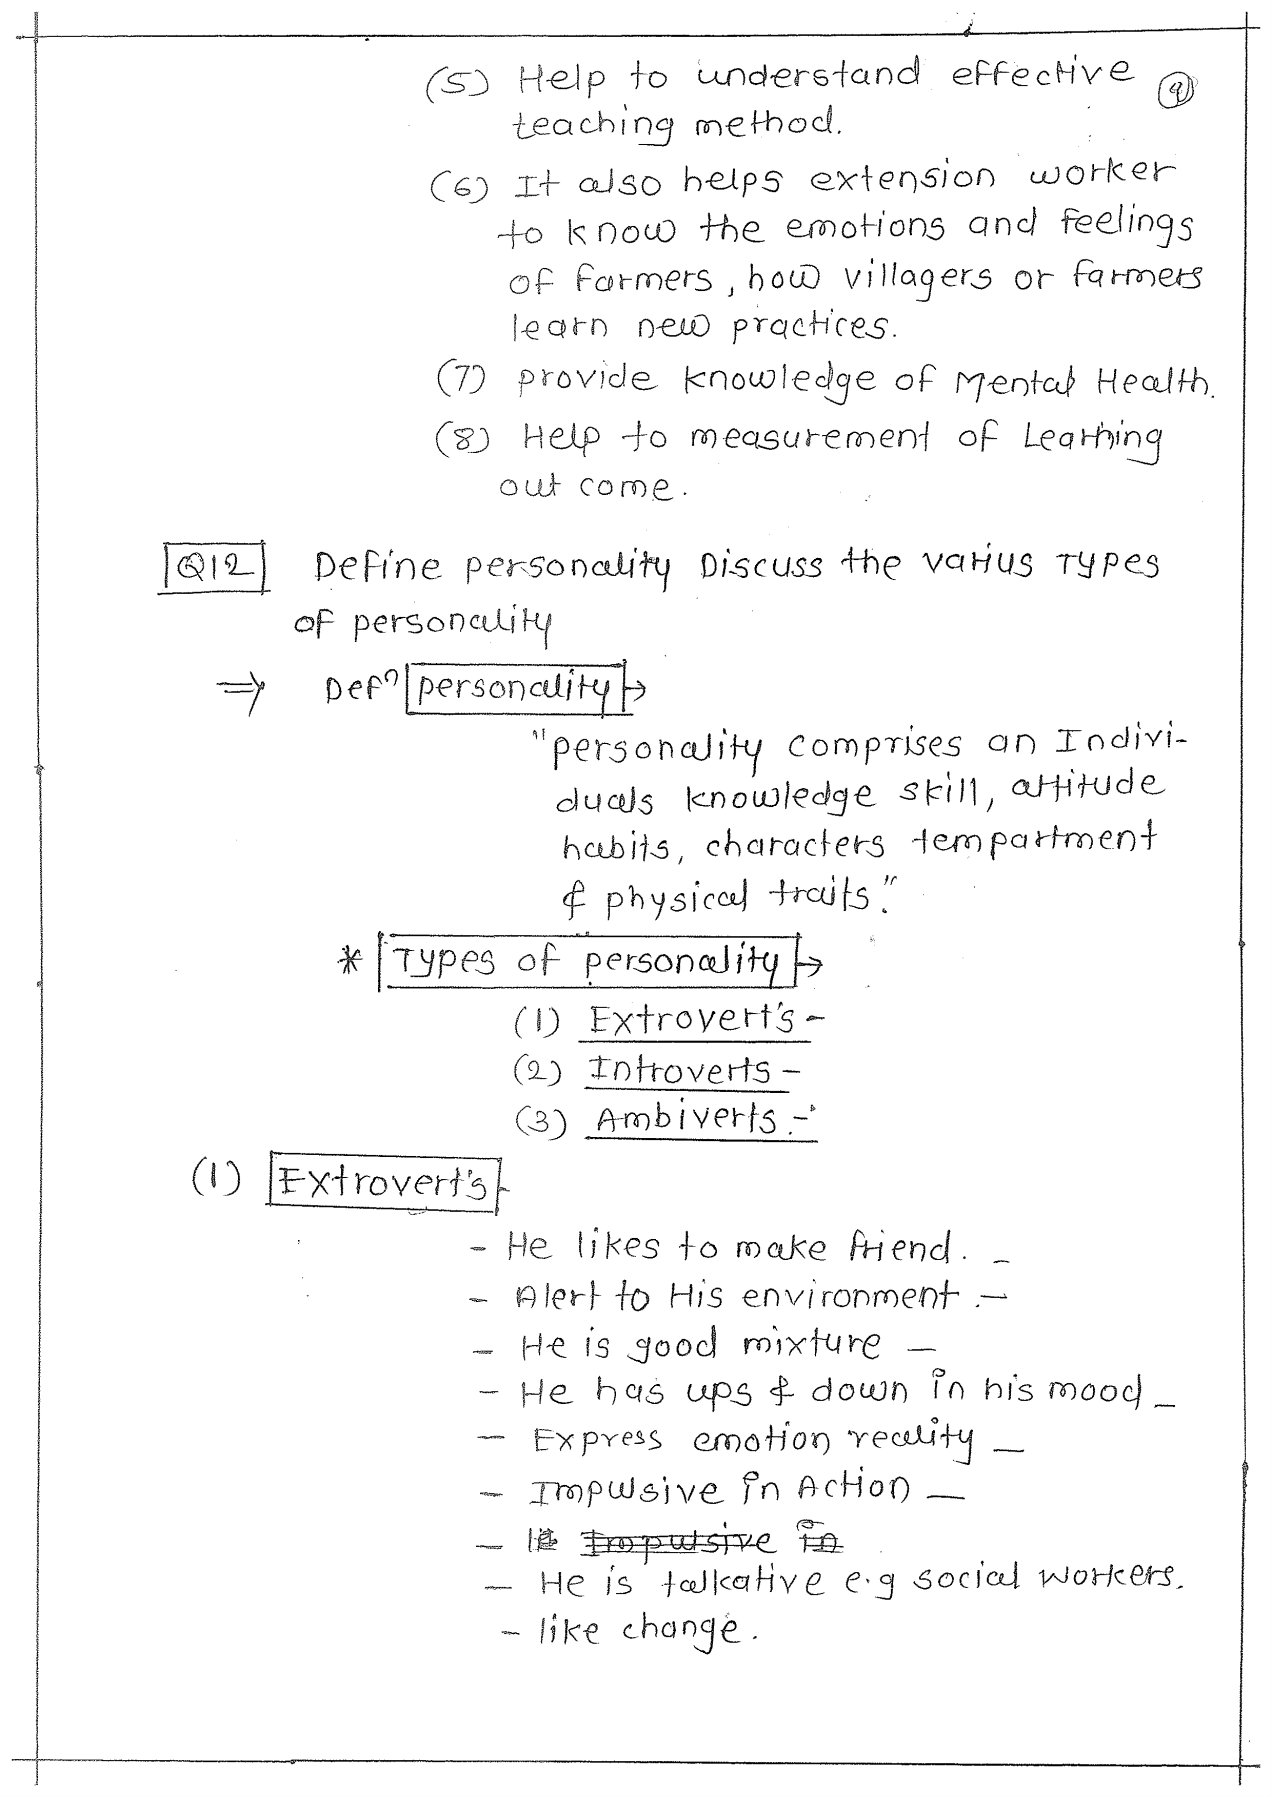 (5) Help to understand effective (9)
teaching method.
(6) It also helps extension worker
to know the emotions and feelings
of farmers, how villagers or farmers
learn new practices.
(7) provide knowledge of Mental Health.
(8) Help to measurement of Learning
out come.
Q12 Define personality Discuss the varius Types
of personality
⇒ Defn personality →
"personality comprises an Indivi-
duals knowledge skill, attitude
habits, characters tempartment
& physical traits."
* Types of personality →
(1) Extrovert's -
(2) Introverts -
(3) Ambiverts.-
(1) Extrovert's -
- He likes to make friend. -
- Alert to His environment. -
- He is good mixture -
- He has ups & down in his mood -
- Express emotion reality -
- Impulsive in Action -
- Impulsive in
- He is talkative e.g social workers.
- like change.